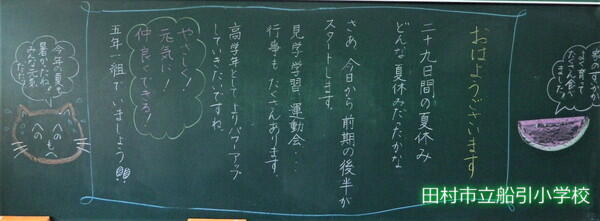 おはようございます
二十九日間の夏休み
どんな夏休みだったかな
さあ、今日から前期の後半が
スタートします。
見学学習、運動会...
行事もたくさんあります。
高学年としてよりパワーアップ
していきたいですね。
やさしく!
元気に!
仲良くできる!
五年一組でいましょう!!!
今年の夏も
暑かったね。
みんな元気
だった?
よく育って
たくさん食べ
ました。
へのへのも
田村市立船引小学校